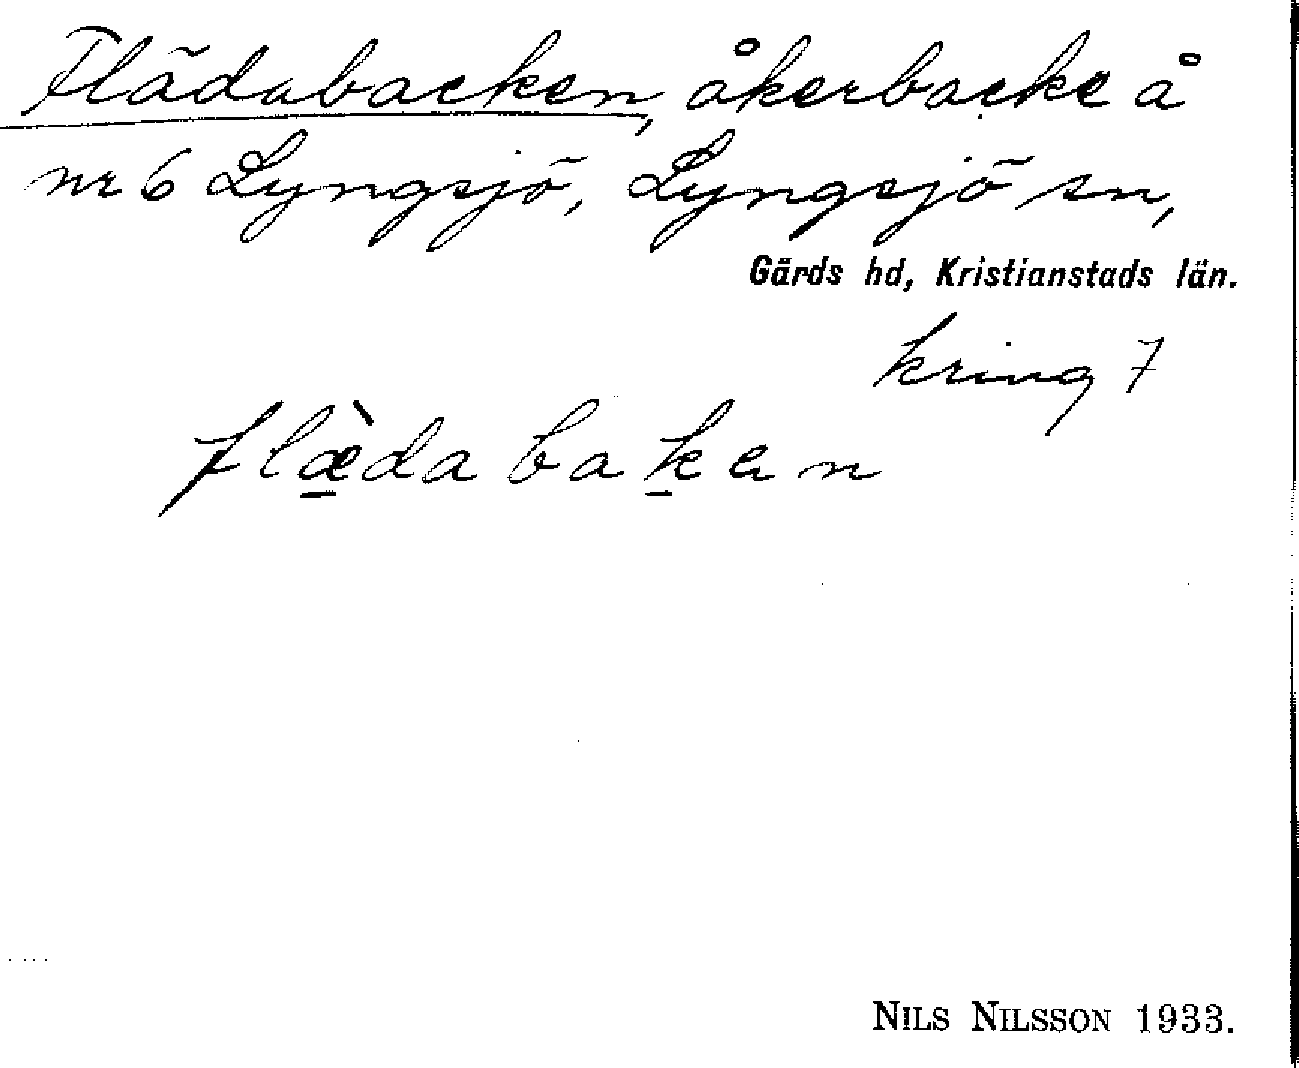 Flädabacken, åkerbacke å
nr 6 Lyngsjö, Lyngsjö sn,
Gärds hd, Kristianstads län.
kring 7
flæ̠̀daba k̠en
NILS NILSSON 1933.